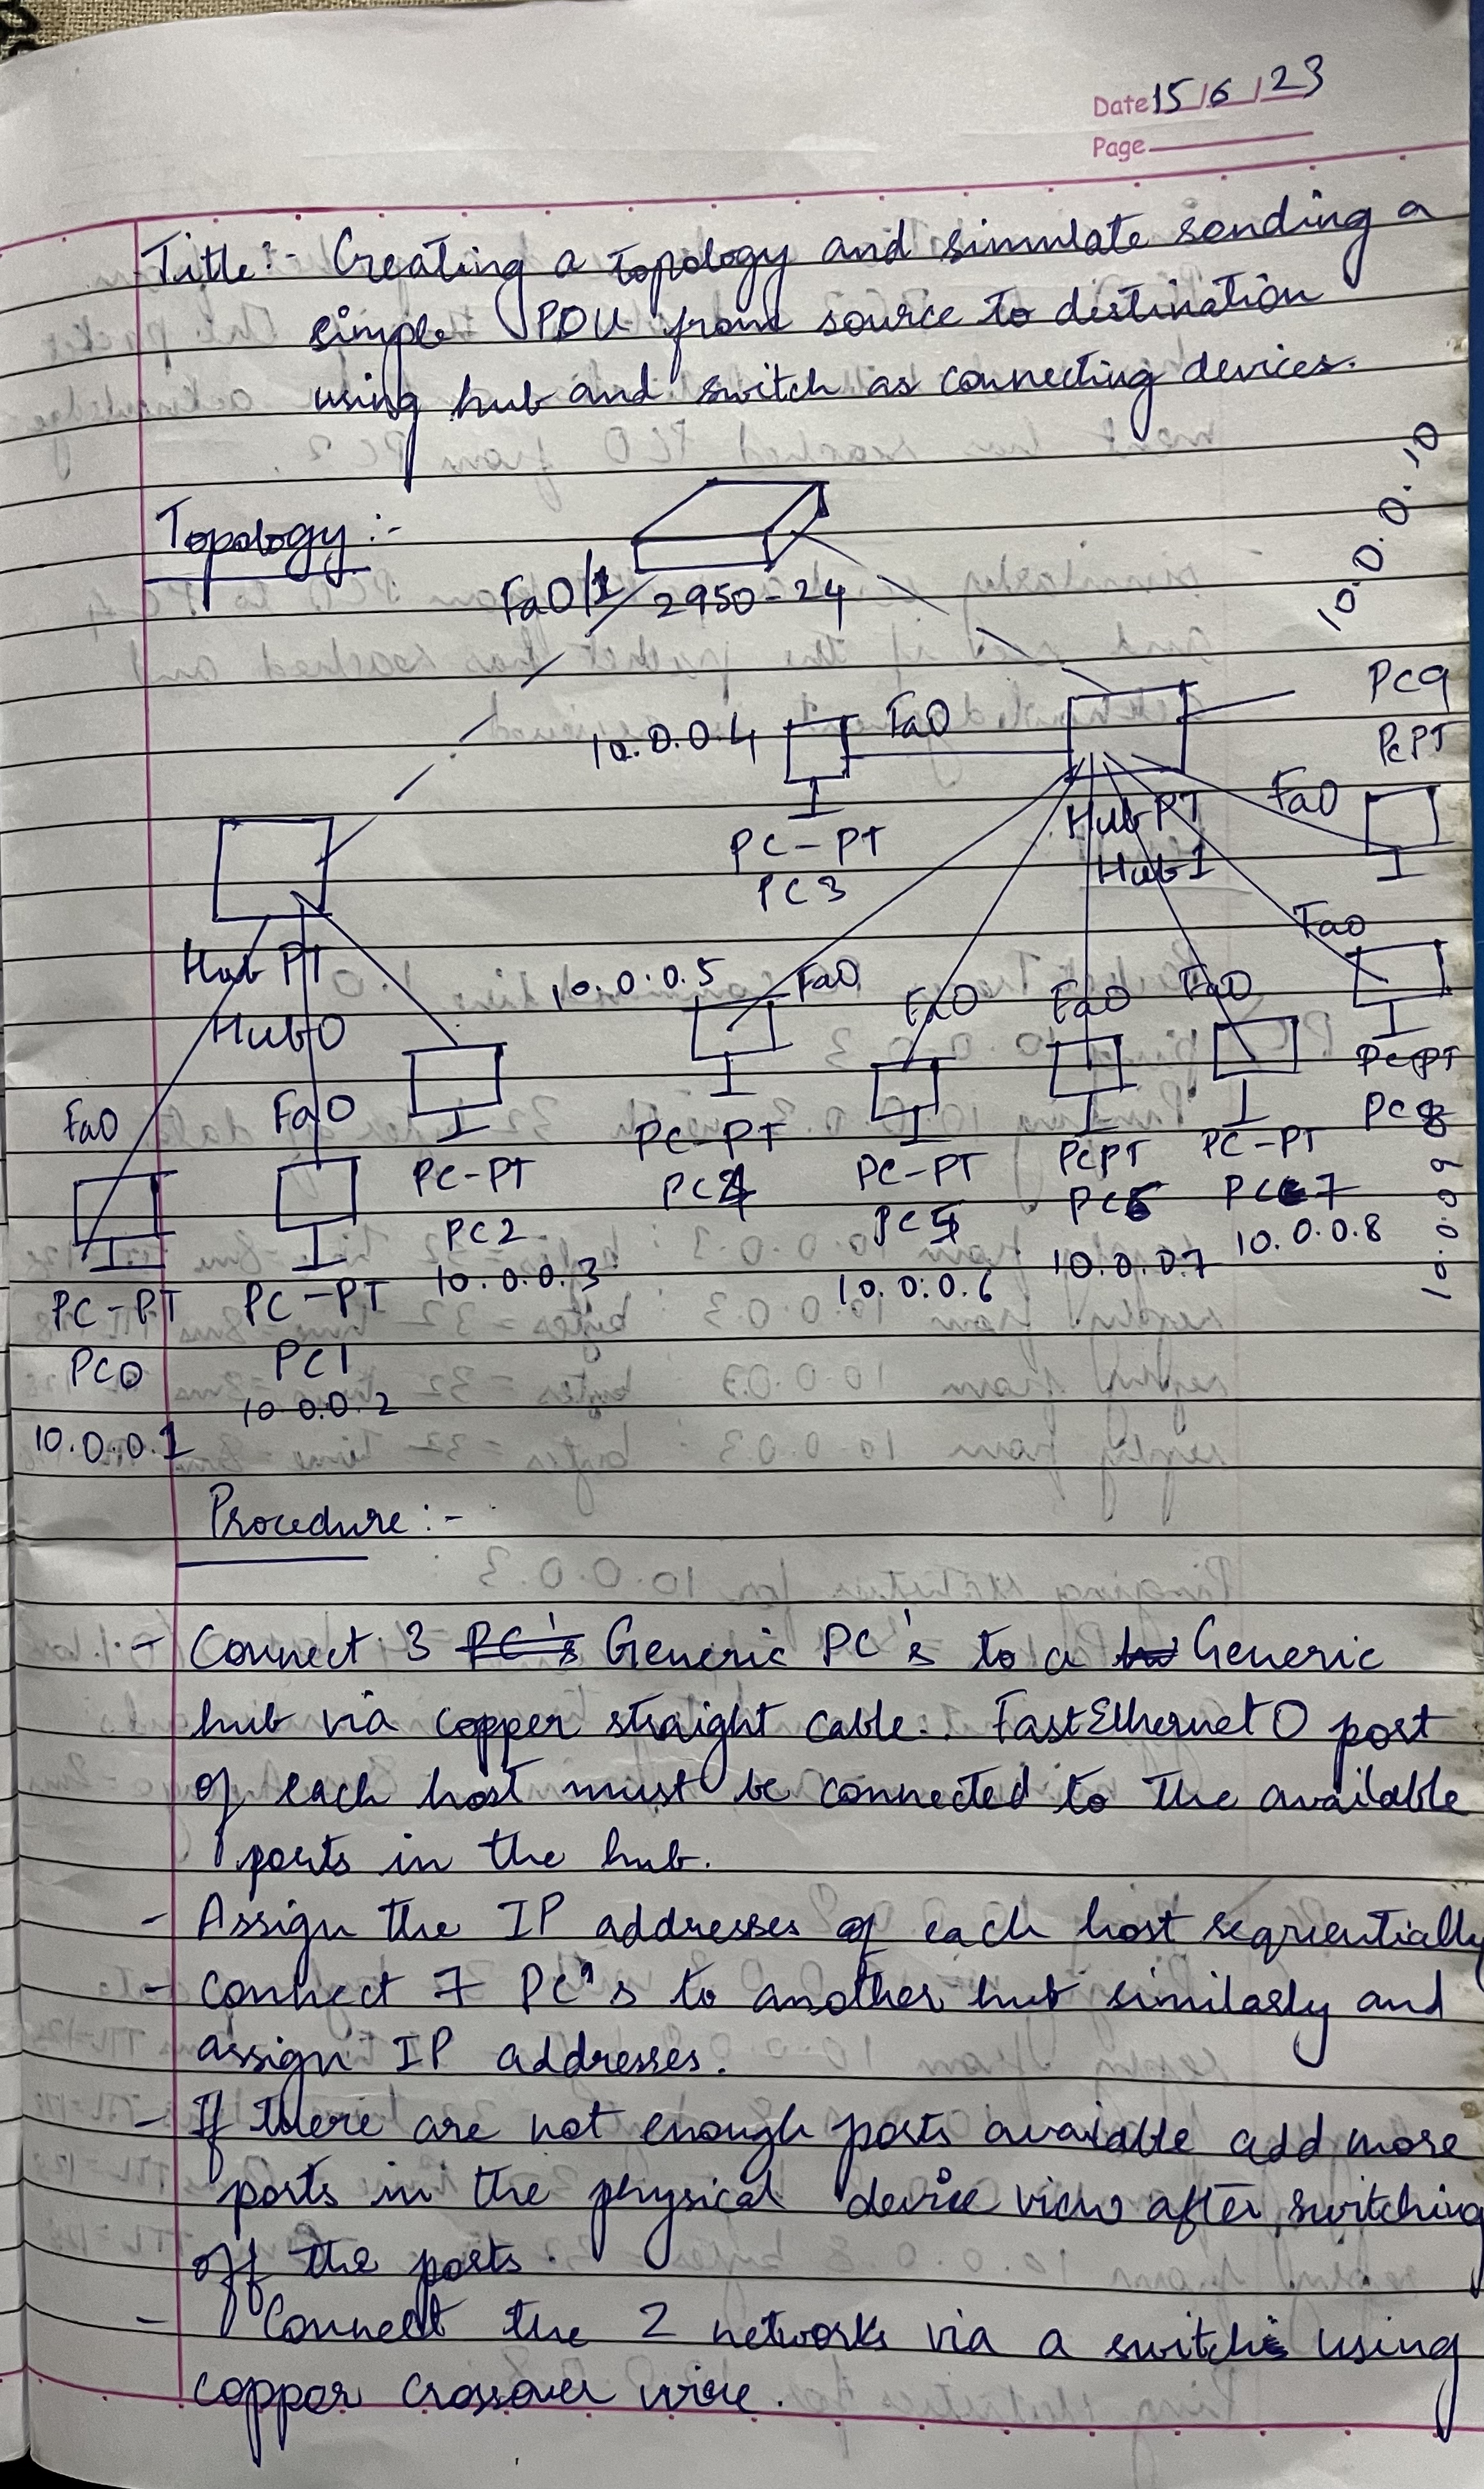 Date 15/6/23
Page
Title:- Creating a topology and simulate sending a
simple PDU from source to destination
using hub and switch as connecting devices.
10.0.0.10
Topology:-
Fa0/1 2950-24
PC9
PcPT
10.0.0.4 Fa0
Fa0
Hub PT
Hub1
PC-PT
PC3
Hub PT
Hub0
10.0.0.5 Fa0 Fa0 Fa0 Fa0 Fa0
Fa0 Fa0
PC-PT
PC2
10.0.0.3
PC-PT
PC4
PC-PT
PC5
10.0.0.6
PCPT
PC6
10.0.0.7
PC-PT
PC7
10.0.0.8
PcPT
PC8
10.0.0.9
PC-PT
PC0
10.0.0.1
PC-PT
PC1
10.0.0.2
Procedure:-
- Connect 3 PC's Generic PC's to a Generic
hub via copper straight cable. FastEthernet0 port
of each host must be connected to the available
ports in the hub.
- Assign the IP addresses of each host sequentially
- Connect 7 PC's to another hub similarly and
assign IP addresses.
- If there are not enough ports available add more
ports in the physical device view after switching
off the ports.
- Connect the 2 networks via a switch using
copper crossover wire.